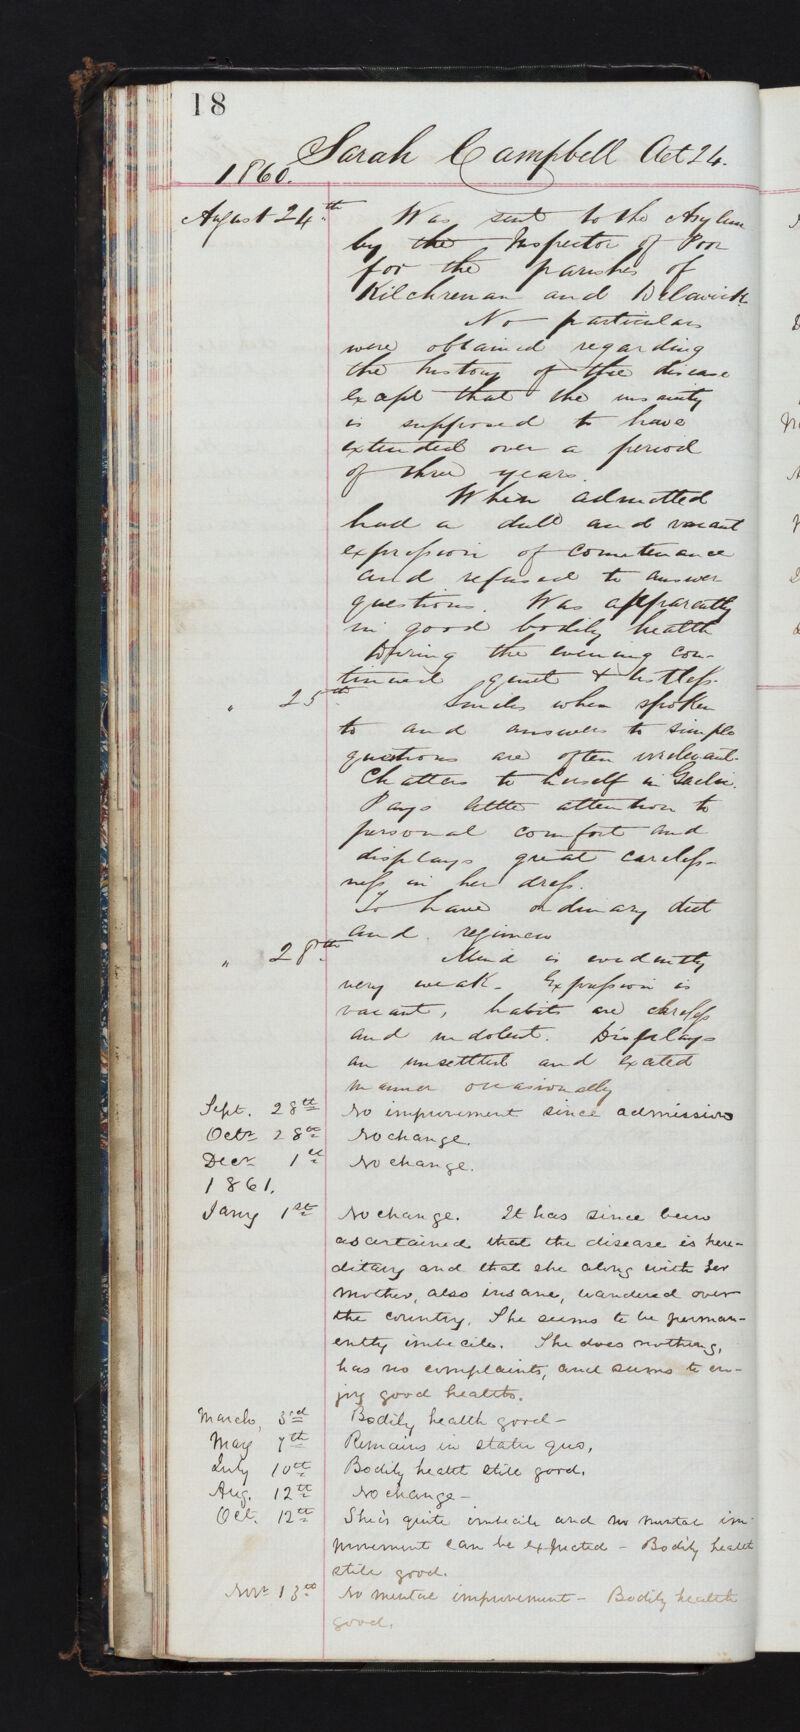 18
Sarah Campbell Aet 24.
1860.
August 24th. Was sent to the Asylum
by the Inspector of Poor
for the parishes of
Kilchrenan and Dalavich.
No particulars
were obtained regarding
the history of the disease
except that the insanity
is supposed to have
extended over a period
of three years.
When admitted
had a dull and vacant
expression of countenance
and refused to answer
questions. Was apparently
in good bodily health
During the evening con-
tinued quiet & listless.
" 25th Smiles when spoken
to and answers to simple
questions are often irrelevant.
Chatters to herself in Gaelic.
Pays little attention to
personal comfort and
displays great careless-
ness in her dress.
To have ordinary diet
and regimen
" 28th. Mind is evidently
very weak. Expression is
vacant, habits are careless
and indolent. Displays
an unsettled and excited
manner occasionally
Sept. 28th No improvement since admission
Octr 28th No change.
Decr 1st No change.
1861.
Jany 1st No change. It has since been
ascertained that the disease is here-
ditary and that she along with her
mother, also insane, wandered over
the country. She seems to be perman-
ently imbecile. She does nothing,
has no complaints, and seems to en-
joy good health.
March, 3rd Bodily health good-
May 7th Remains in statu quo.
July 10th Bodily health still good.
Aug. 12th No change-
Oct. 12th She is quite imbecile and no mental im-
provement can be expected - Bodily health
still good.
Novr 13th No mental improvement - Bodily health
good.